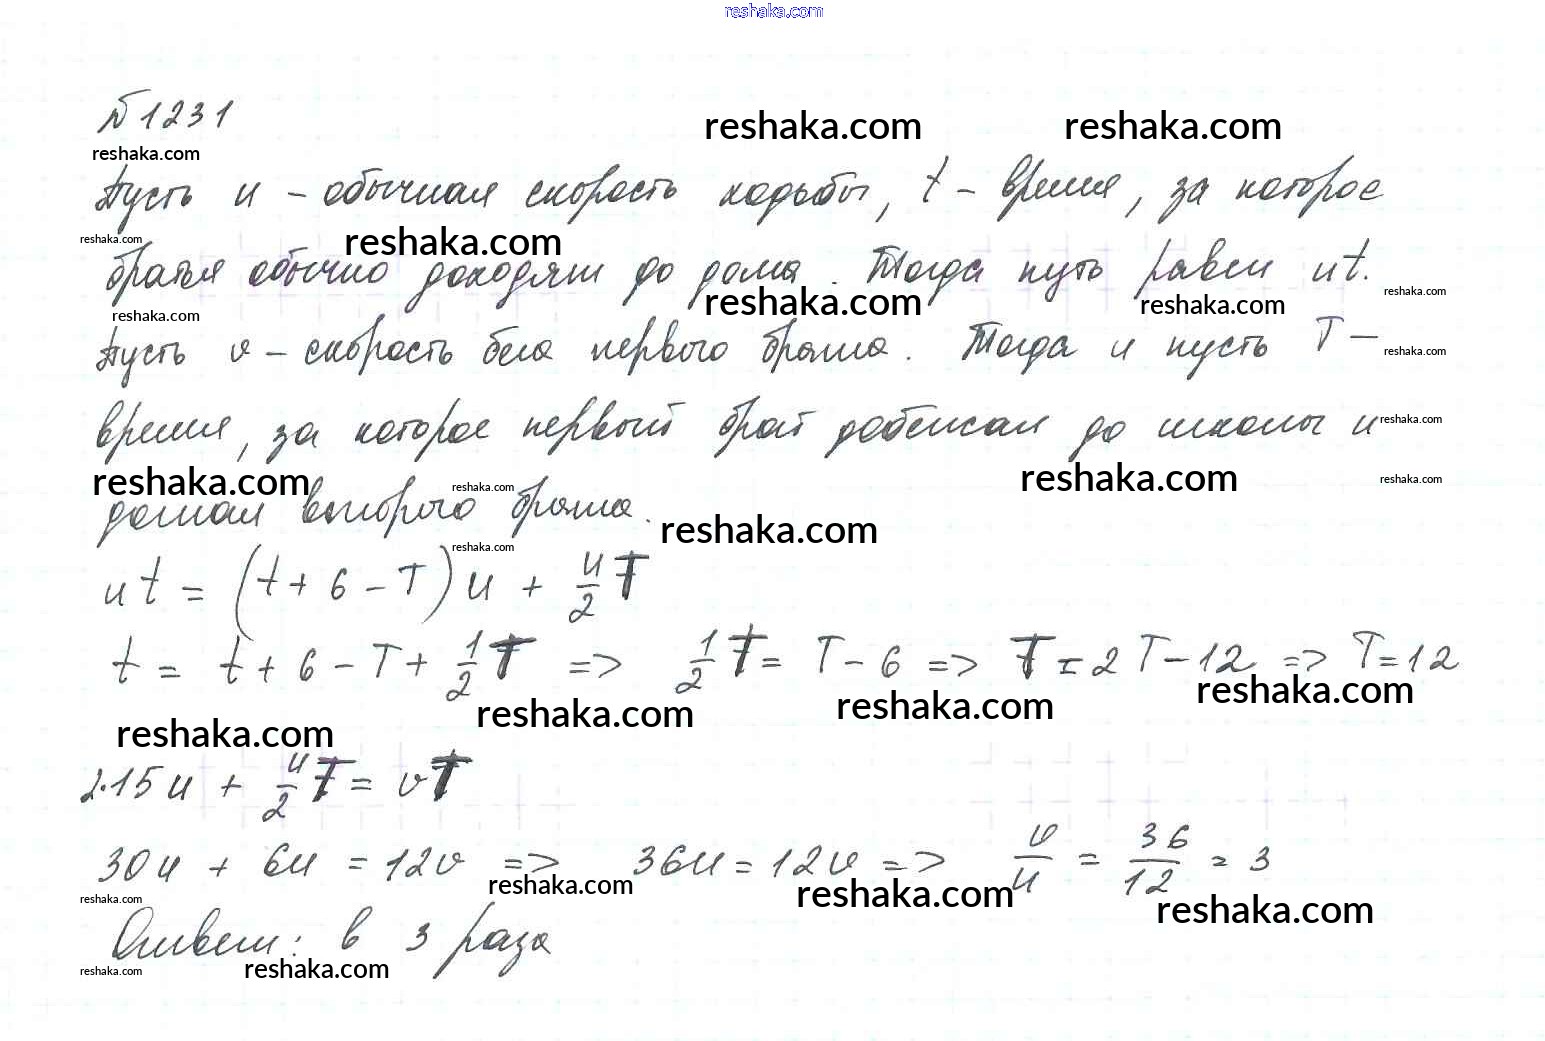 reshaka.com
№1231
reshaka.com reshaka.com
reshaka.com
Пусть u – обычная скорость ходьбы, t – время, за которое
reshaka.com reshaka.com
братья обычно доходят до дома. Тогда путь равен ut.
reshaka.com reshaka.com reshaka.com reshaka.com
Пусть v – скорость бега первого брата. Тогда и пусть T –
reshaka.com
время, за которое первый брат добежал до школы и
reshaka.com
reshaka.com reshaka.com reshaka.com reshaka.com
догнал второго брата.
reshaka.com
reshaka.com
ut = (t + 6 – T) u + u/2 T
t = t + 6 – T + 1/2 T => 1/2 T = T – 6 => T = 2T – 12 => T = 12
reshaka.com reshaka.com reshaka.com
reshaka.com
2·15u + u/2 T = vT
30u + 6u = 12v => 36u = 12v => v/u = 36/12 = 3
reshaka.com reshaka.com reshaka.com reshaka.com
Ответ: в 3 раза
reshaka.com reshaka.com